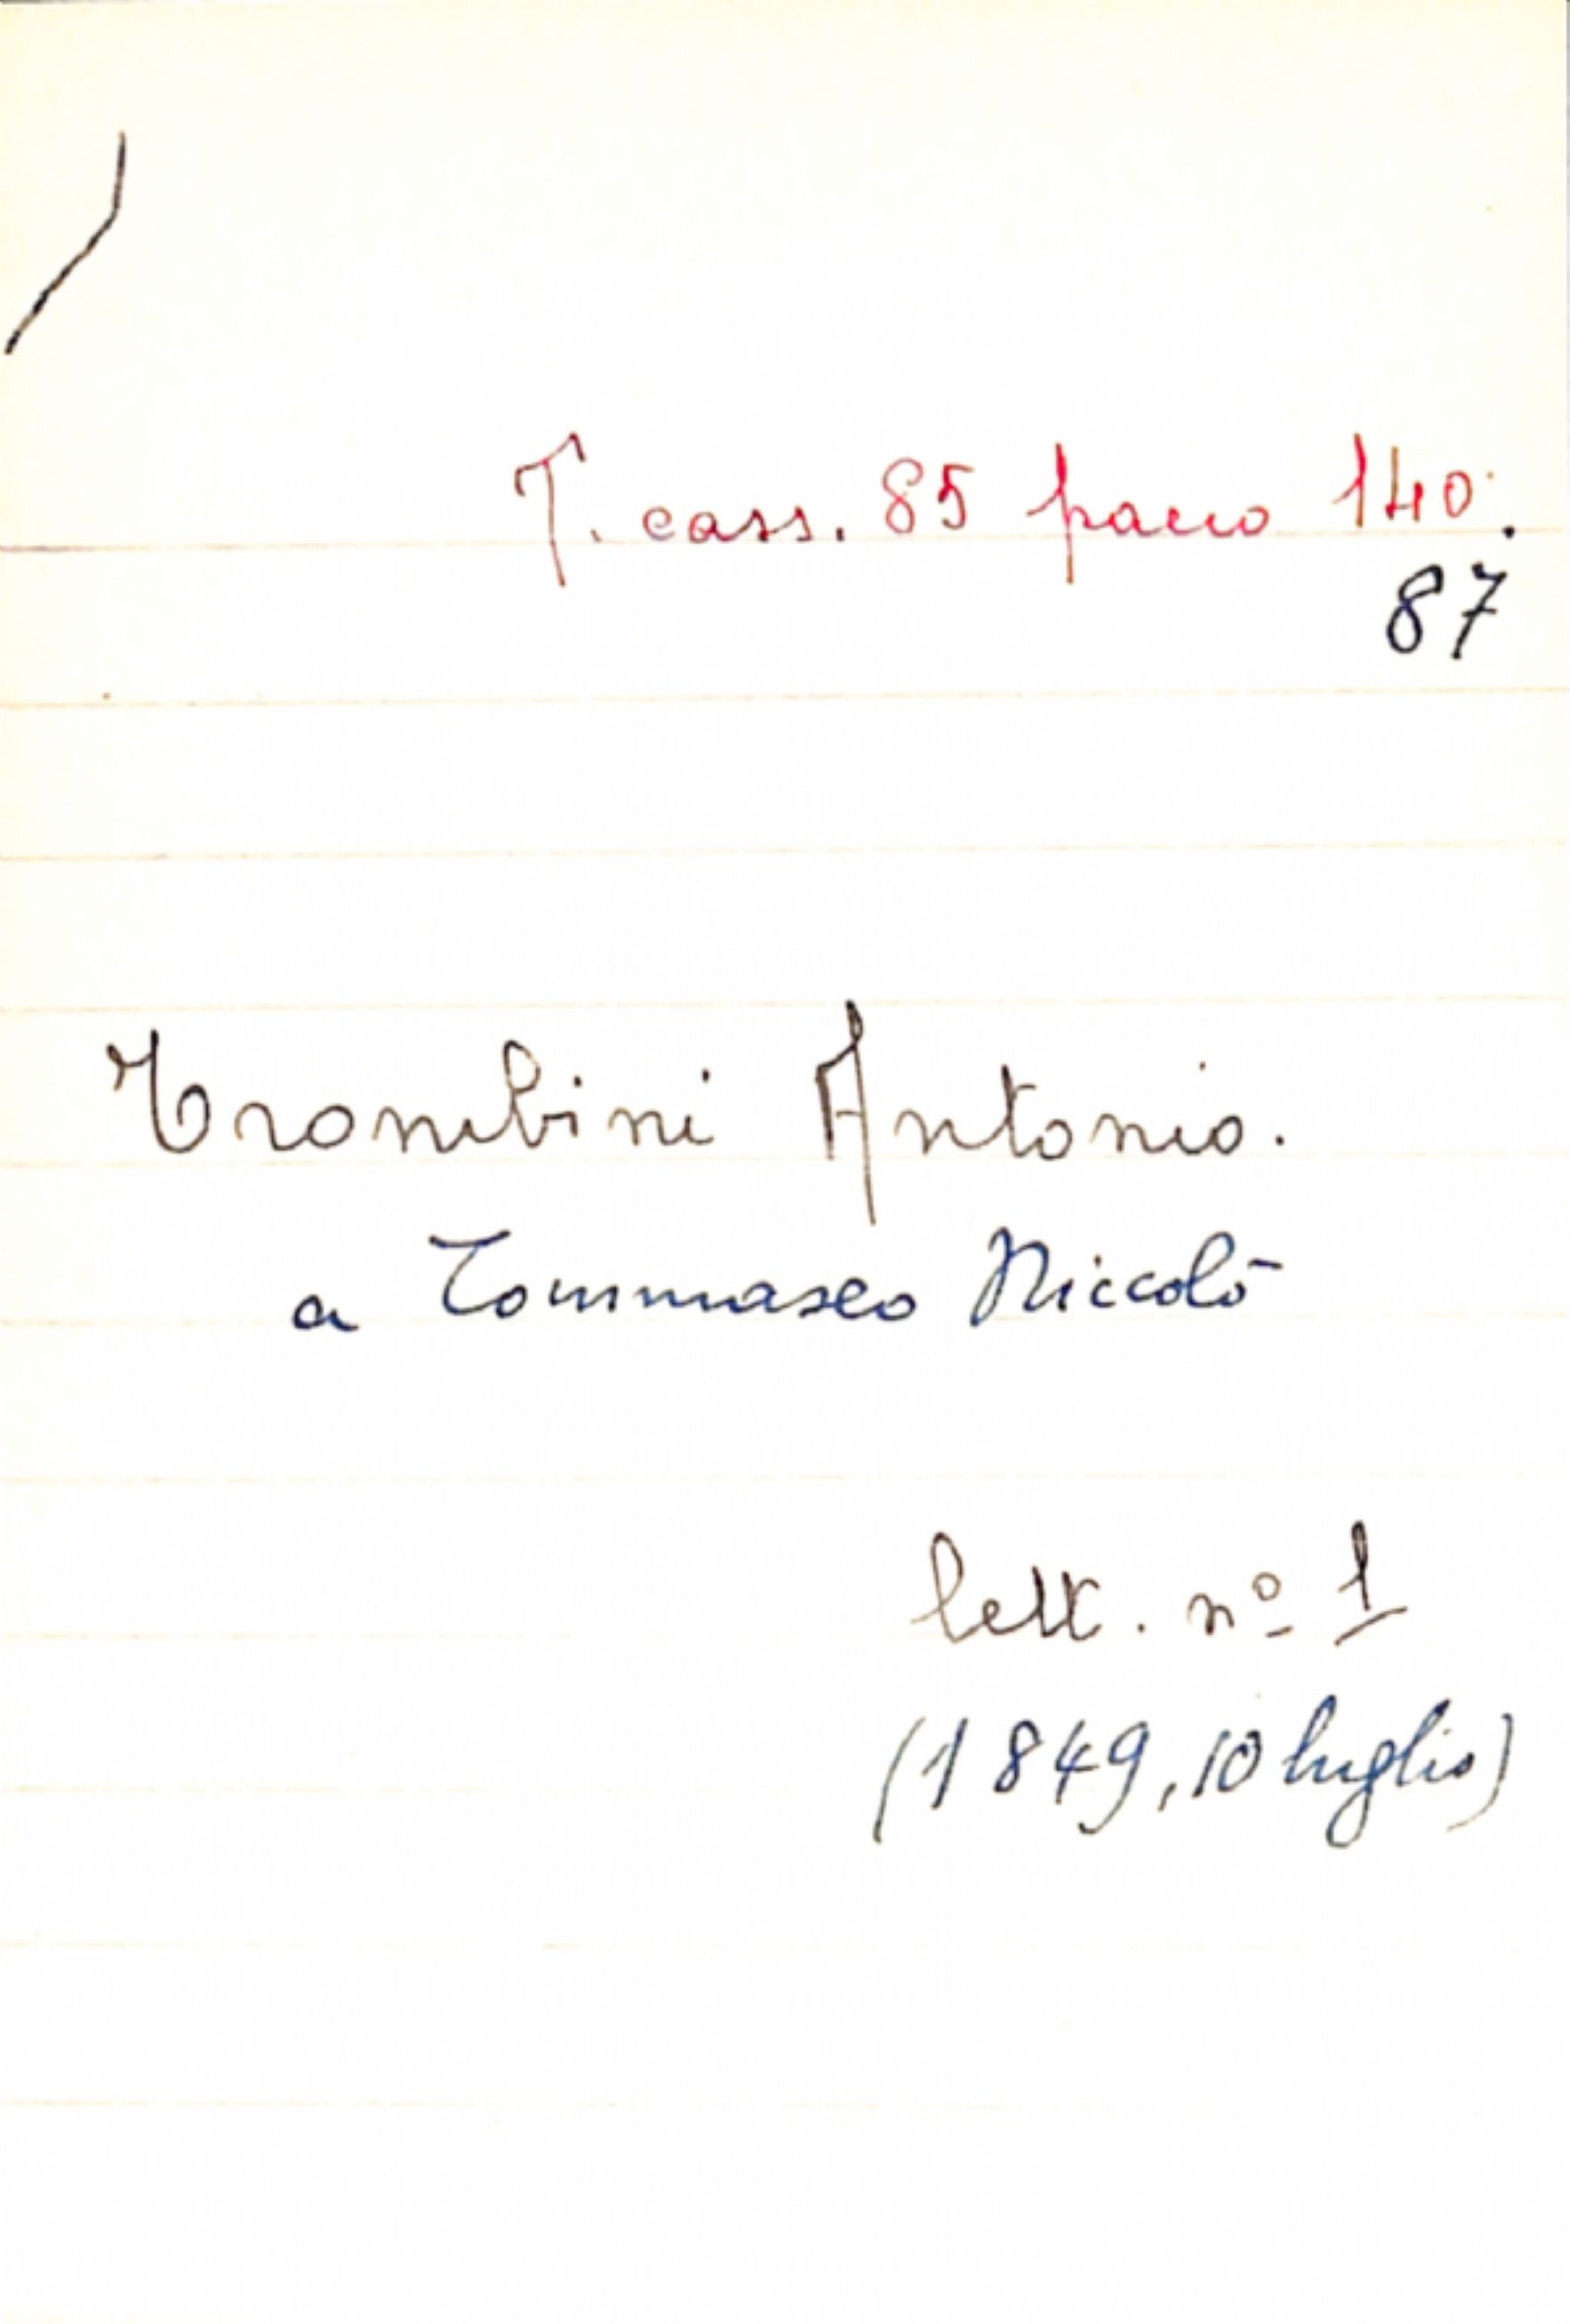 T. cass. 85 pacco 140.
87
Trombini Antonio.
a Tommaseo Niccolò
lett. nº 1
(1849, 10 luglio)